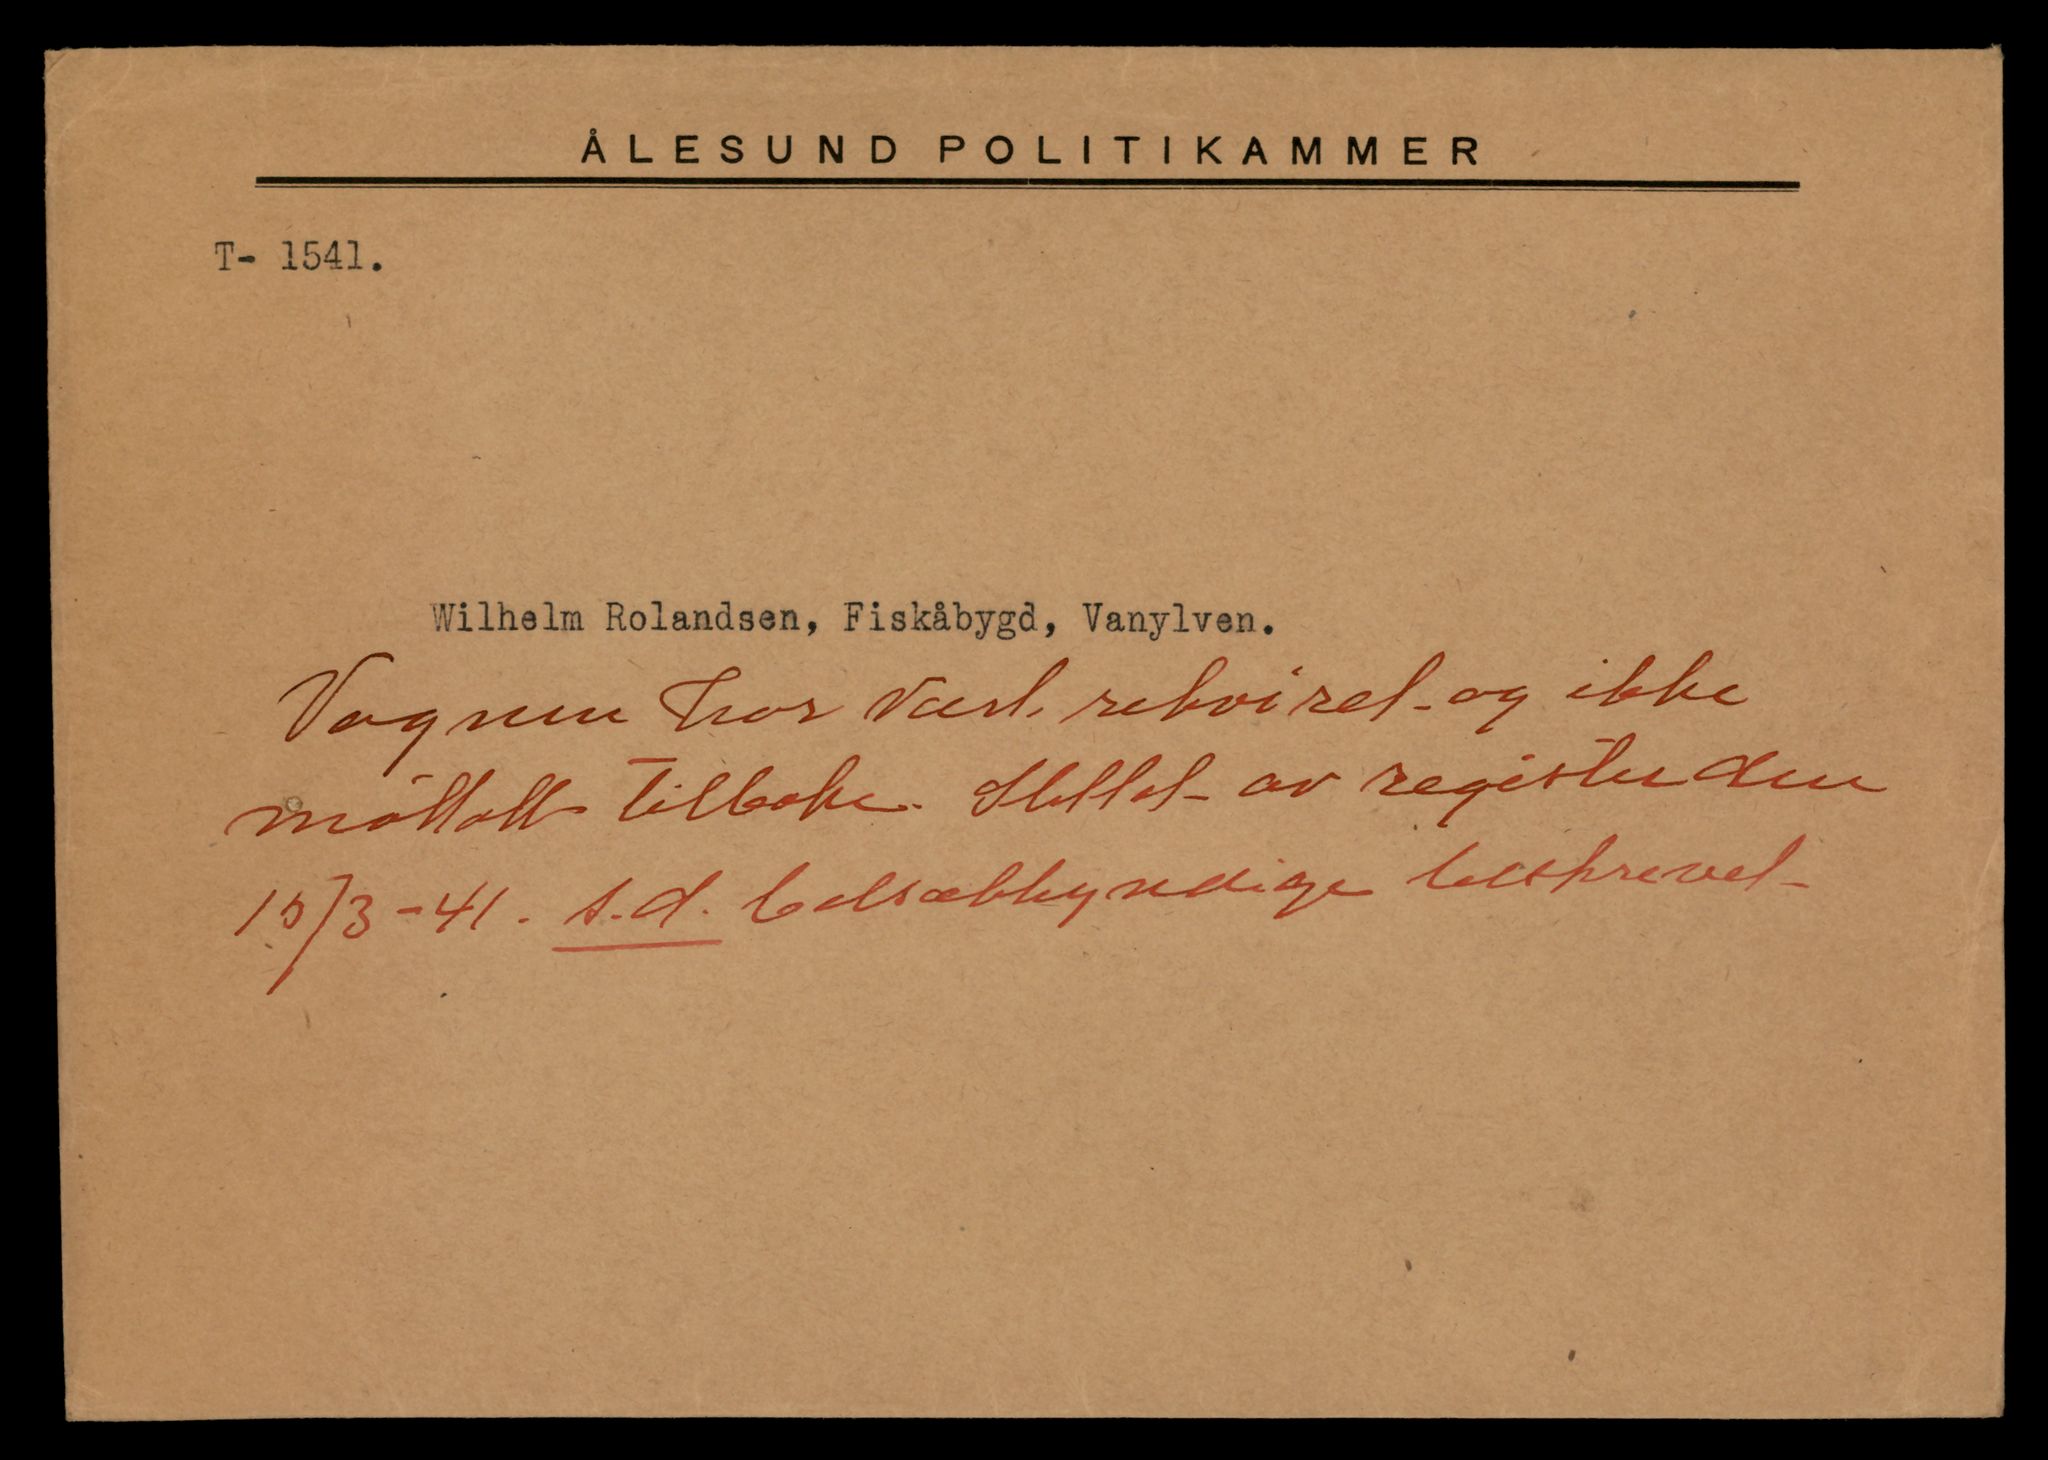 ÅLESUND POLITIKAMMER
T- 1541.
Wilhelm Rolandsen, Fiskåbygd, Vanylven.
Vognen har vært rekviret og ikke
mottatt tilbake. Slettet av register den
15/3-41. s.d. bilsakkyndige beskrevet